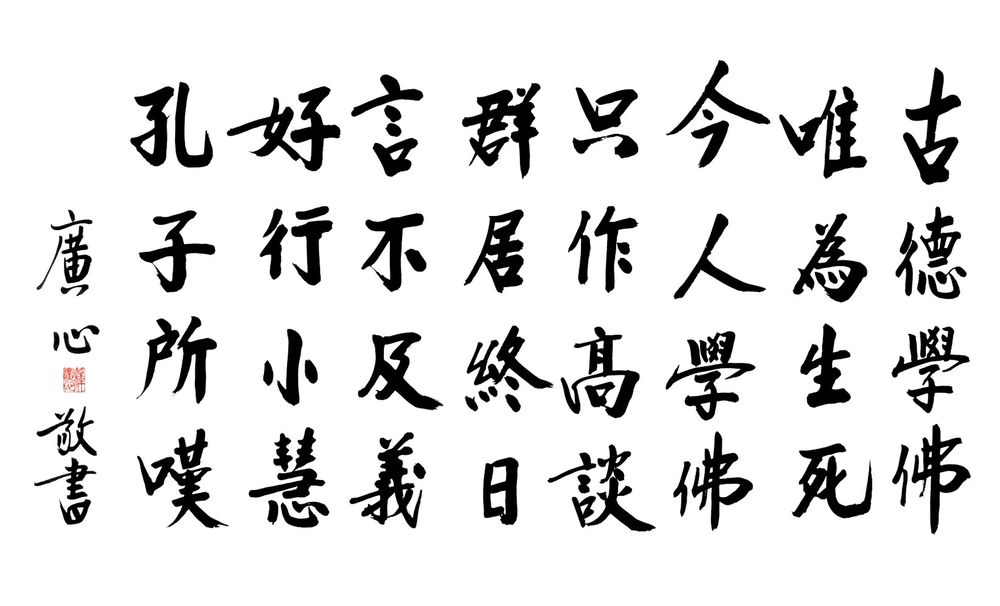 古德學佛
唯為生死
今人學佛
只作高談
群居終日
言不及義
好行小慧
孔子所嘆
廣心敬書